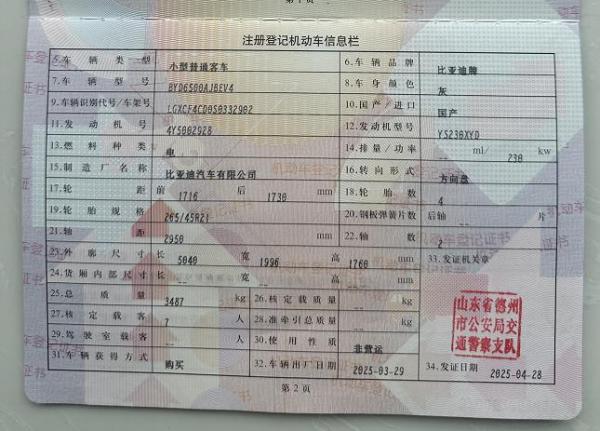 第 1 页
注册登记机动车信息栏
5.车辆类型 小型普通客车 6.车辆品牌 比亚迪牌
7.车辆型号 BYD6500AJBEV4 8.车身颜色 灰
9.车辆识别代号/车架号 LGXCF4CD0S0332902 10.国产/进口 国产
11.发动机号 4Y5002928 12.发动机型号 YS230XYD
13.燃料种类 电 14.排量/功率 -- ml/ 230 kw
15.制造厂名称 比亚迪汽车有限公司 16.转向形式 方向盘
17.轮距 前 1716 后 1730 mm 18.轮胎数 4
19.轮胎规格 265/45R21 20.钢板弹簧片数 后轴 -- 片
21.轴距 2950 mm 22.轴数 2
23.外廓尺寸 长 5040 宽 1996 高 1760 mm 33.发证机关章
24.货厢内部尺寸 长 -- 宽 -- 高 -- mm
25.总质量 3487 kg 26.核定载质量 -- kg
27.核定载客 7 人 28.准牵引总质量 -- kg
29.驾驶室载客 -- 人 30.使用性质 非营运
31.车辆获得方式 购买 32.车辆出厂日期 2025-03-29 34.发证日期 2025-04-28
山东省德州
市公安局交
通警察支队
第 2 页